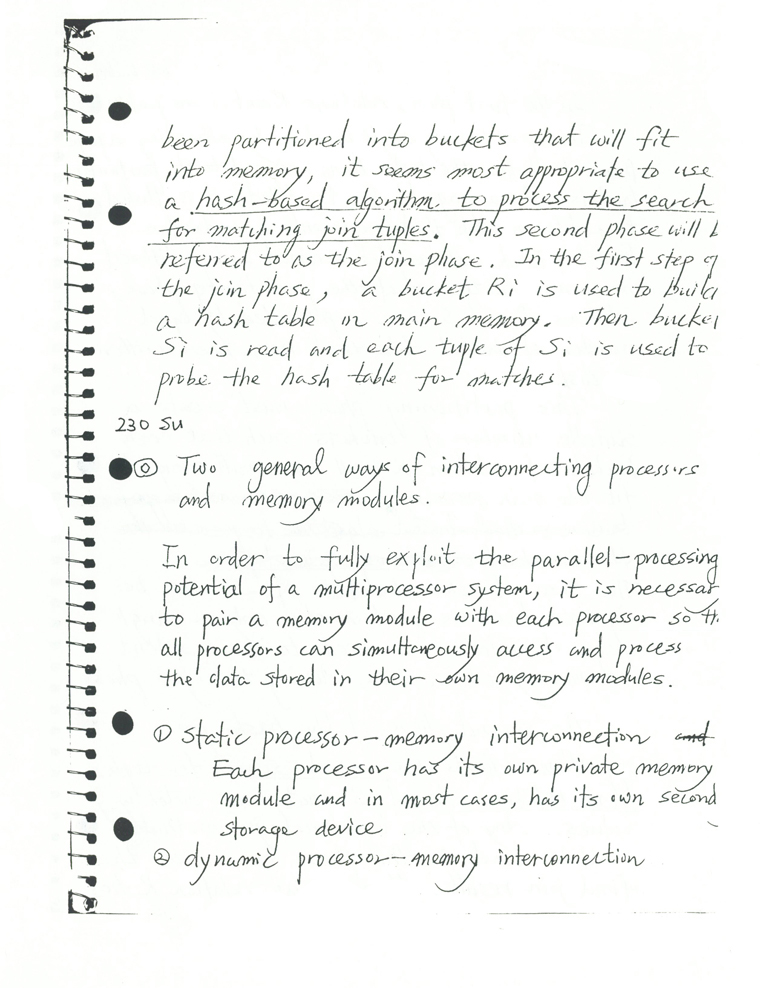 been partitioned into buckets that will fit
into memory, it seems most appropriate to use
a hash-based algorithm to process the search
for matching join tuples. This second phase will b
referred to as the join phase. In the first step of
the join phase, a bucket Ri is used to build
a hash table in main memory. Then bucket
Si is read and each tuple of Si is used to
probe the hash table for matches.
230 Su
◎ Two general ways of interconnecting processors
and memory modules.
In order to fully exploit the parallel-processing
potential of a multiprocessor system, it is necessar
to pair a memory module with each processor so th
all processors can simultaneously access and process
the data stored in their own memory modules.
① static processor-memory interconnection and
Each processor has its own private memory
module and in most cases, has its own second
storage device
② dynamic processor-memory interconnection